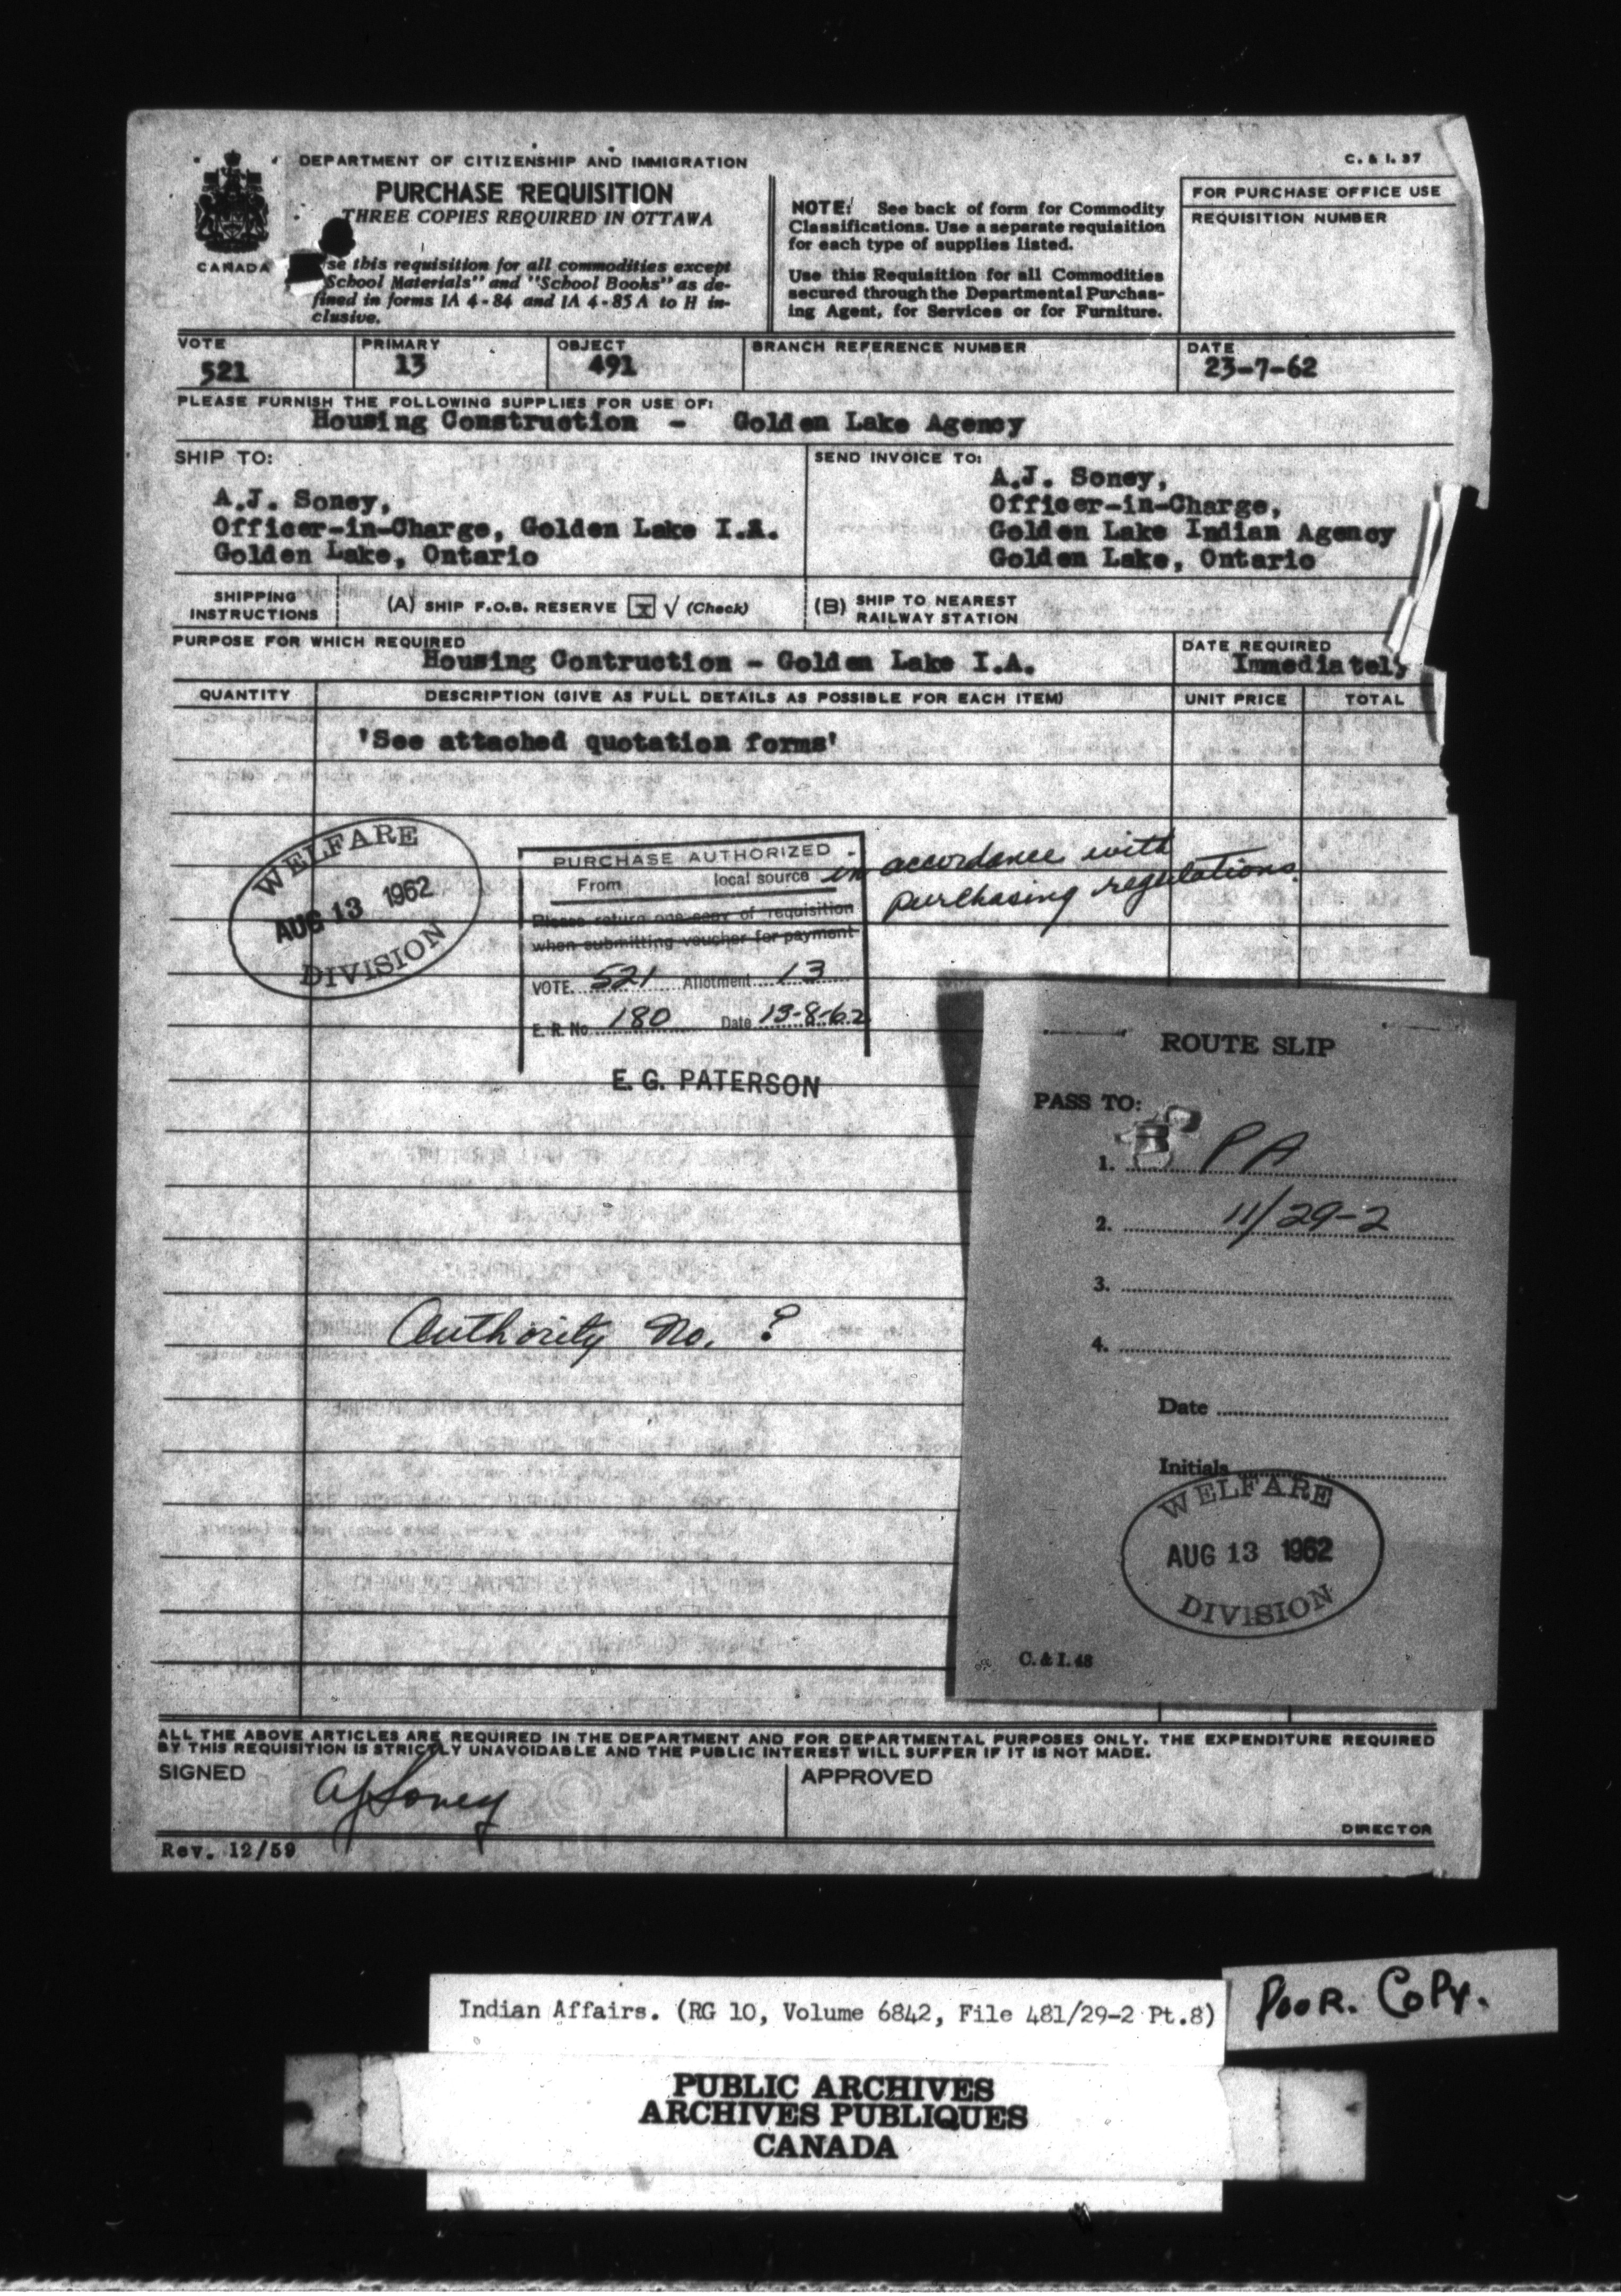 C. & I. 37
DEPARTMENT OF CITIZENSHIP AND IMMIGRATION
PURCHASE REQUISITION
THREE COPIES REQUIRED IN OTTAWA
CANADA
se this requisition for all commodities except
"School Materials" and "School Books" as de-
fined in forms IA 4-84 and IA 4-85 A to H in-
clusive.
NOTE: See back of form for Commodity
Classifications. Use a separate requisition
for each type of supplies listed.
Use this Requisition for all Commodities
secured through the Departmental Purchas-
ing Agent, for Services or for Furniture.
FOR PURCHASE OFFICE USE
REQUISITION NUMBER
VOTE
521
PRIMARY
13
OBJECT
491
BRANCH REFERENCE NUMBER
DATE
23-7-62
PLEASE FURNISH THE FOLLOWING SUPPLIES FOR USE OF:
Housing Construction - Golden Lake Agency
SHIP TO:
A.J. Soney,
Officer-in-Charge, Golden Lake I.A.
Golden Lake, Ontario
SEND INVOICE TO:
A.J. Soney,
Officer-in-Charge,
Golden Lake Indian Agency
Golden Lake, Ontario
SHIPPING
INSTRUCTIONS
(A) SHIP F.O.B. RESERVE x √ (Check)
(B) SHIP TO NEAREST
RAILWAY STATION
PURPOSE FOR WHICH REQUIRED
Housing Contruction - Golden Lake I.A.
DATE REQUIRED
Immediately
QUANTITY DESCRIPTION (GIVE AS FULL DETAILS AS POSSIBLE FOR EACH ITEM) UNIT PRICE TOTAL
'See attached quotation forms'
WELFARE
AUG 13 1962
DIVISION
PURCHASE AUTHORIZED
From local source in accordance with
purchasing regulations.
Please return one copy of requisition
when submitting voucher for payment
VOTE 521 Allotment 13
E. R. No. 180 Date 13-8-62
E. G. PATERSON
Authority No. ?
ROUTE SLIP
PASS TO:
1. PA
2. 11/29-2
3.
4.
Date
Initials
WELFARE
AUG 13 1962
DIVISION
C. & I. 48
ALL THE ABOVE ARTICLES ARE REQUIRED IN THE DEPARTMENT AND FOR DEPARTMENTAL PURPOSES ONLY. THE EXPENDITURE REQUIRED
BY THIS REQUISITION IS STRICTLY UNAVOIDABLE AND THE PUBLIC INTEREST WILL SUFFER IF IT IS NOT MADE.
SIGNED
AJ Soney
APPROVED
DIRECTOR
Rev. 12/59
Indian Affairs. (RG 10, Volume 6842, File 481/29-2 Pt.8)
POOR. COPY.
PUBLIC ARCHIVES
ARCHIVES PUBLIQUES
CANADA